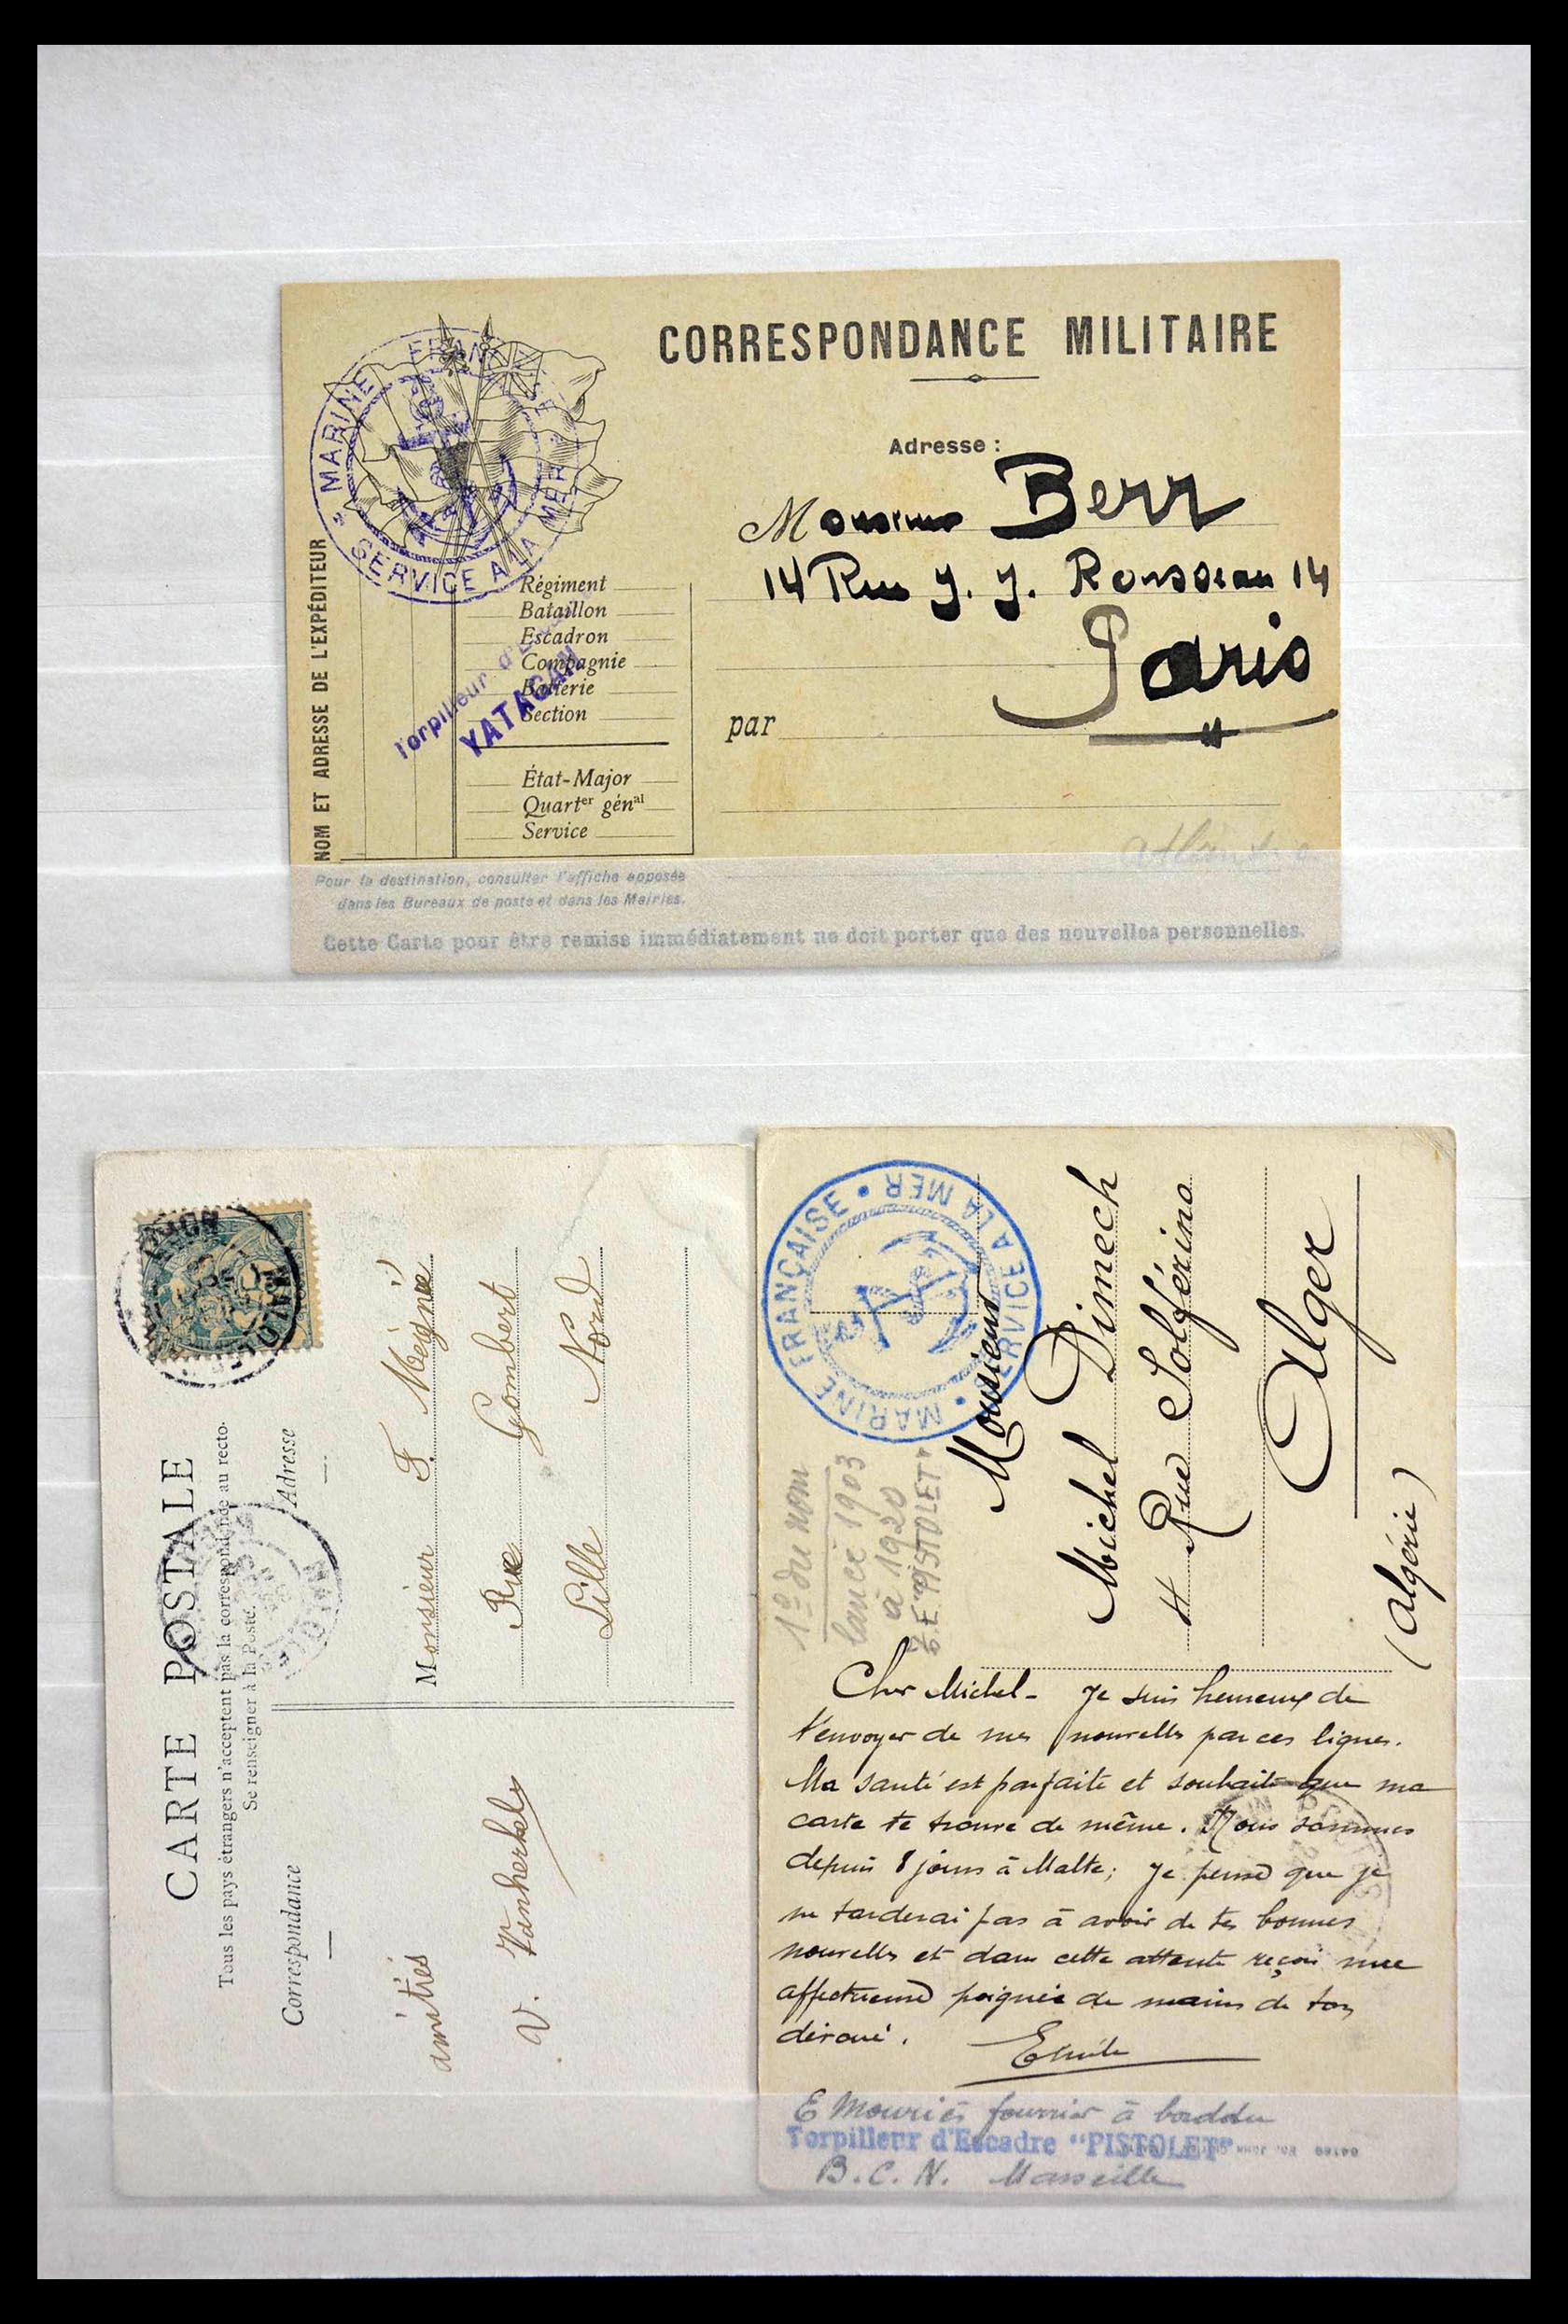 CORRESPONDANCE MILITAIRE
MARINE FRAN
SERVICE A LA MER
Adresse :
Monsieur Berr
14 Rue J. J. Rousseau 14
Paris
par
NOM ET ADRESSE DE L'EXPÉDITEUR
Régiment
Bataillon
Escadron
Compagnie
Batterie
Section
État-Major
Quartᵉʳ génᵃˡ
Service
Torpilleur d'Es
YATAGAN
Pour la destination, consulter l'affiche apposée
dans les Bureaux de poste et dans les Mairies.
Cette Carte pour être remise immédiatement ne doit porter que des nouvelles personnelles.
CARTE POSTALE
Tous les pays étrangers n'acceptent pas la correspondance au recto.
Se renseigner à la Poste.
Correspondance
Adresse
Monsieur F.
Rue Gombert
Lille Nord
amitiés
V. Vanherkel
MARINE FRANÇAISE • SERVICE A LA MER •
1º du nom
lancé 1903
à 1920
"PISTOLET"
Monsieur
Michel Dimech
4 Rue Solférino
Alger
(Algérie)
Cher Michel - Je suis heureux de
t'envoyer de mes nouvelles par ces lignes.
Ma santé est parfaite et souhaite que ma
carte te trouve de même. Nous sommes
depuis 8 jours à Malte; Je pense que je
ne tarderai pas à avoir de tes bonnes
nouvelles et dans cette attente reçois une
affectueuse poignée de mains de ton
dévoué.
Emile
E Mouriès fourrier à bord du
Torpilleur d'Escadre "PISTOLET"
B.C.N. Marseille